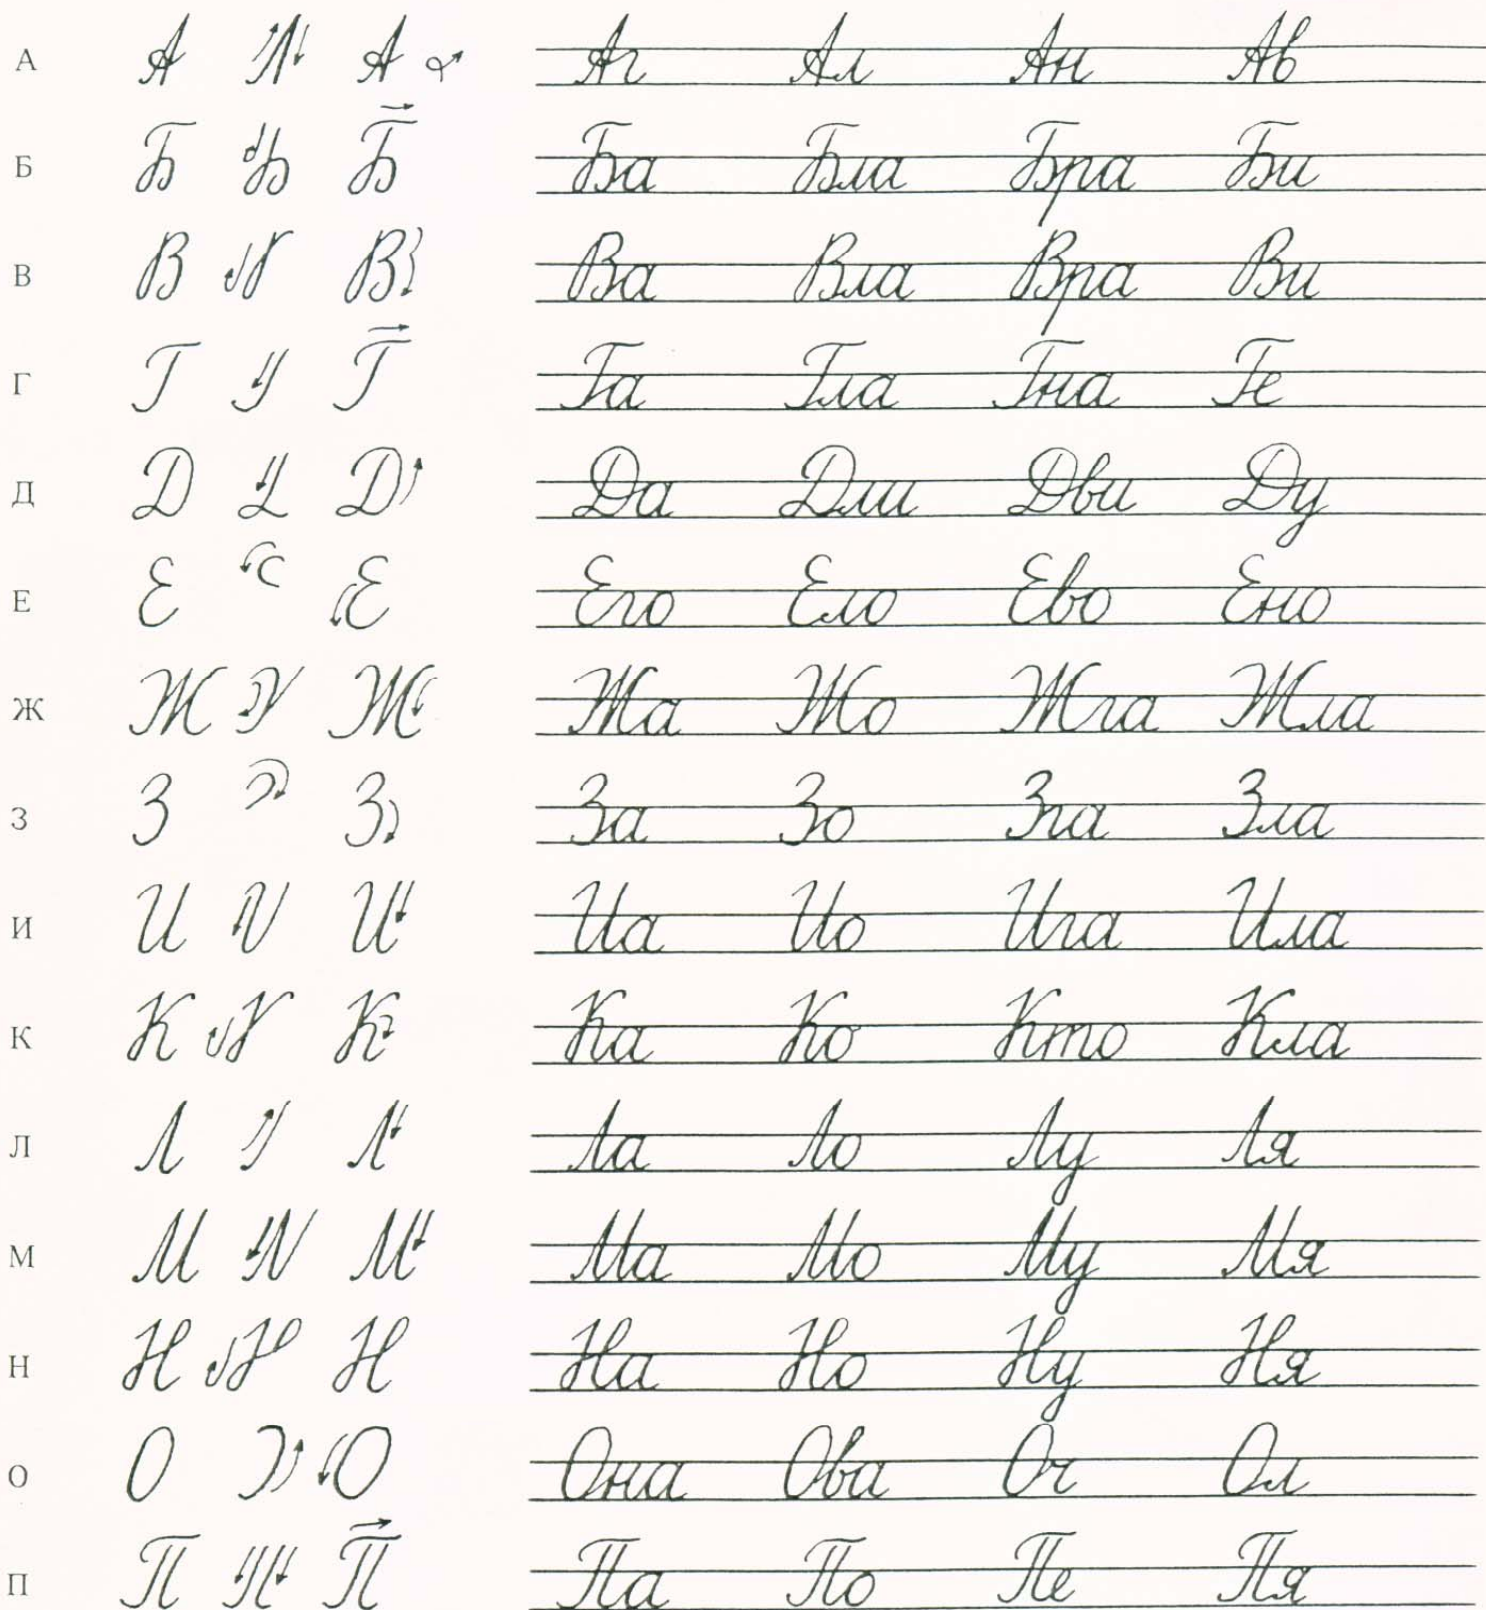 А А А Аг Ал Ан Ав
Б Б Б Ба Бла Бра Би
В В В Ва Вла Вра Ви
Г Г Г Га Гла Гна Ге
Д Д Д Да Дли Дви Ду
Е Е Е Его Ело Ево Ено
Ж Ж Ж Жа Жо Жга Жла
З З З За Зо Зга Зла
И И И Иа Ио Ига Ила
К К К Ка Ко Кто Кла
Л Л Л Ла Ло Лу Ля
М М М Ма Мо Му Мя
Н Н Н На Но Ну Ня
О О О Она Ова Ог Ол
П П П Па По Пе Пя